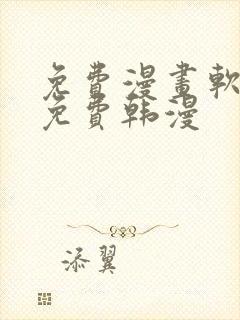 免費漫畫軟
免費韩漫
添翼